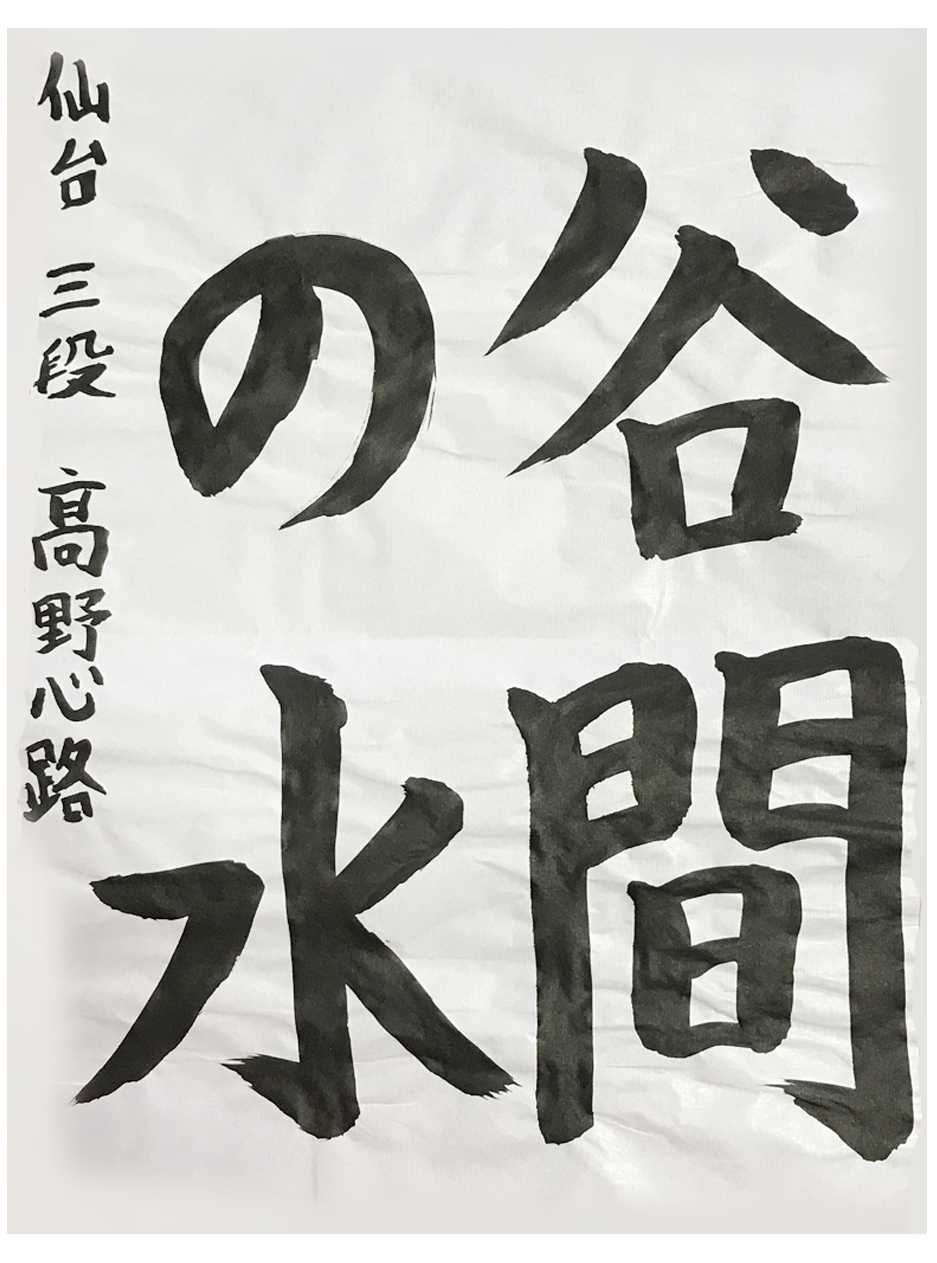 谷間
の水
仙台 三段 高野心路